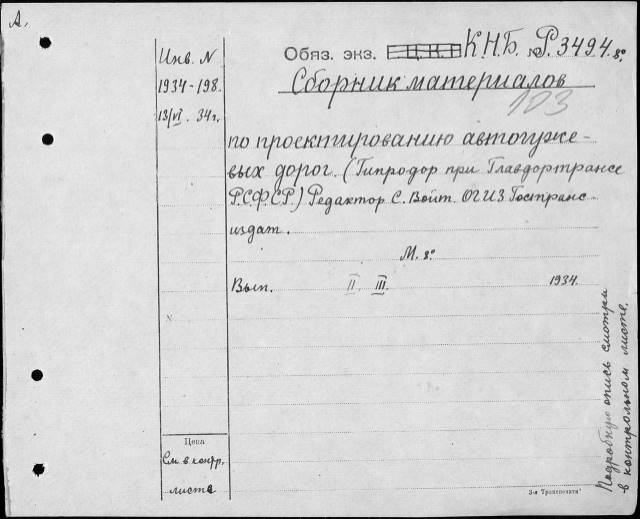 А.
Инв. N
1934-198.
13/VI. 34г.
Обяз. экз. Ц.К.Г К.Н.Б. Р.3494. 8°.
Сборник материалов
103
по проектированию автогуже-
вых дорог. (Гипродор при Главдортрансе
Р.С.Ф.С.Р.) Редактор С. Войт. ОГИЗ Гострансиздат.
М. 8°.
Вып. II. III. 1934.
Цена
См. в контр.
листе
Подробную опись смотри
в контрольном листе.
3-я Транспечать